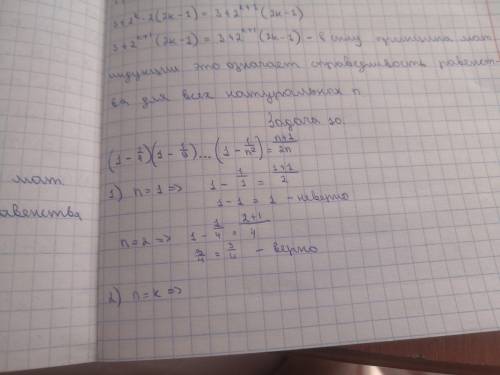 3+2^k·2(2k-1) = 3+2^{k+1}(2k-1)
3+2^{k+1}(2k-1) = 3+2^{k+1}(2k-1) - в силу принципа мат
индукции это означает справедливость равенст-
ва для всех натуральных n
Задача 10.
(1-1/4)(1-1/9)...(1-1/n²) = n+1/2n
1) n=1 => 1-1/1 = 1+1/2
мат
1-1 = 1 - неверно
авенства
n=2 => 1-1/4 = 2+1/4
3/4 = 3/4 - верно
2) n=k =>